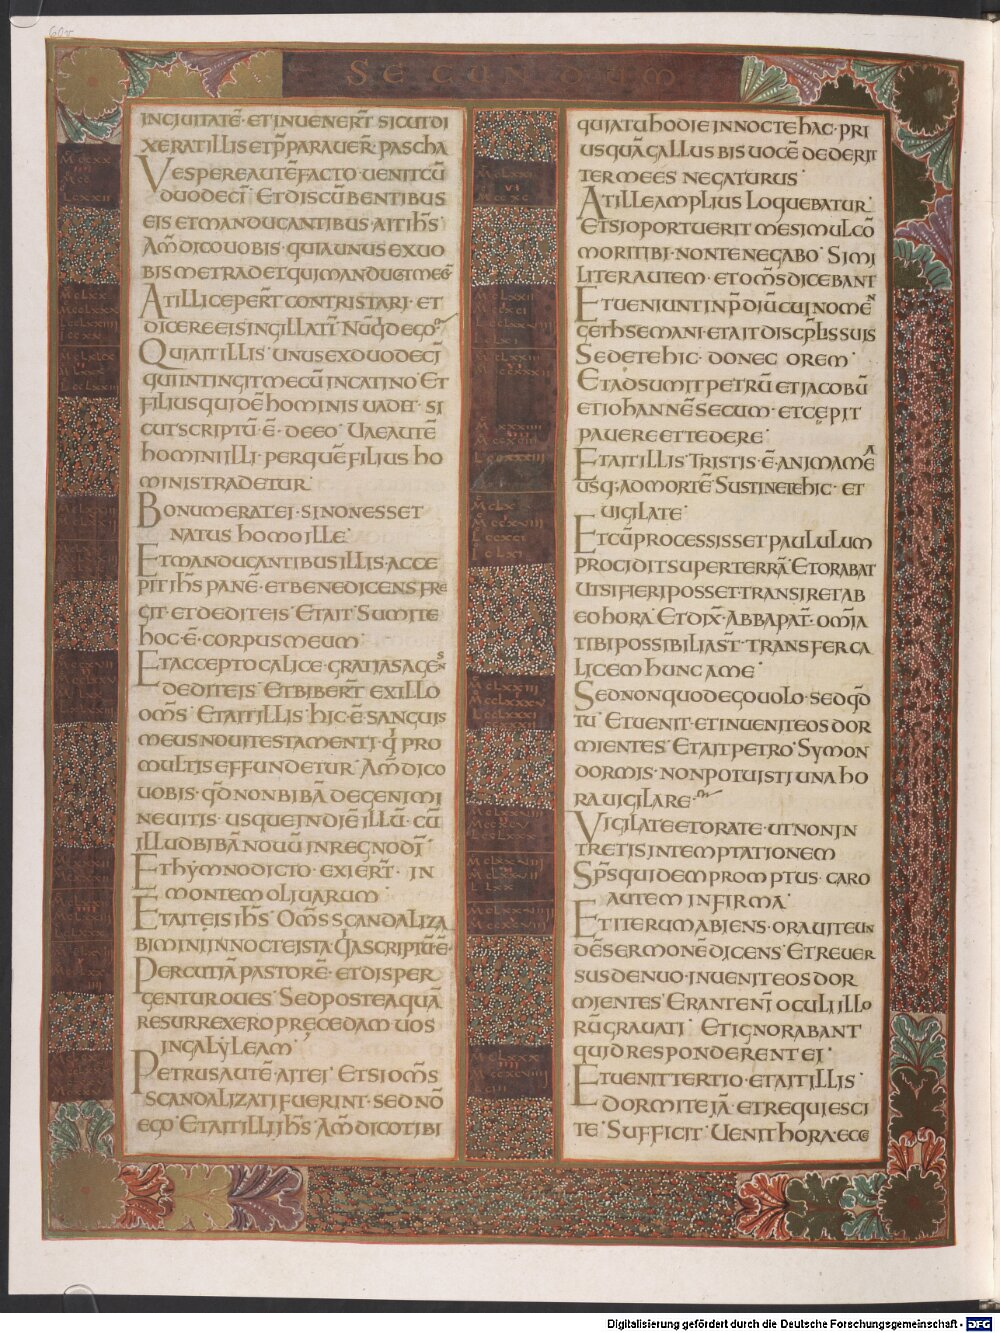 60v
SECUNDUM
INCIUITATĒ· ETINUENER̄T SICUTDI
XERATILLIS ETP̄PARAUER̄· PASCHA
VESPEREAUTĒFACTO· UENITCŪ
DUODECĪ· ETDISCŪBENTIBUS
EIS ETMANDUCANTIBUS· AITIH̄S·
AM̄DICOUOBIS· QUIAUNUS EXUO
BISMETRADETQUIMANDUCATMECŪ
ATILLICEPER̄T CONTRISTARI· ET
DICEREEISINGILLATĪ NŪQ̄DEGO
QUIAITILLIS· UNUSEXDUODECĪ
QUIINTINGITMECŪ INCATINO· ET
FILIUSQUIDĒHOMINIS UADET· SI
CUTSCRIPTŪ·Ē· DEEO· UAEAUTĒ
HOMINIILLI· PERQUĒFILIUS HO
MINISTRADETUR
BONUMERATEI· SINONESSET
NATUS HOMOILLE·
ETMANDUCANTIBUSILLIS· ACCE
PITIH̄S PANĒ· ETBENEDICENSFRE
GIT· ETDEDITEIS· ETAIT· SUMITE
HOC·Ē·CORPUSMEUM·
ETACCEPTOCALICE· GRATIASAGENS
DEDITEIS· ETBIBER̄T EXILLO
OM̄S· ETAITILLIS· HIC·Ē·SANGUIS
MEUSNOUITESTAMENTI· Q̄I PRO
MULTISEFFUNDETUR· AM̄DICO
UOBIS· Q̄DNONBIBĀ DEGENIMI
NEUITIS· USQUEINDIĒILLŪ· CŪ
ILLUDBIBĀNOUŪINREGNODĪ·
ETHYMNODICTO· EXIER̄T· IN
MONTEMOLIUARUM·
ETAITEISIH̄S· OM̄SSCANDALIZA
BIMINIINNOCTEISTA· Q̄IASCRIPTŪĒ·
PERCUTIĀPASTORĒ· ETDISPER
GENTUROUES· SEDPOSTEAQUĀ
RESURREXERO PRĘCEDAM UOS
INGALYLEAM·
PETRUSAUTĒ·AITEI· ETSIOM̄S
SCANDALIZATIFUERINT· SEDNŌ
EGO· ETAITILLIIH̄S· AM̄DICOTIBI
QUIATUHODIEINNOCTEHAC· PRI
USQUĀGALLUS BISUOCĒ DEDERIT
TERMEES NEGATURUS·
ATILLEAMPLIUS LOQUEBATUR·
ETSIOPORTUERIT MESIMULCŌ
MORITIBI· NONTENEGABO· SIMI
LITERAUTEM· ETOM̄SDICEBANT
ETUENIUNTINP̄DIŪCUINOMEN
GETHSEMANI· ETAITDISCP̄LISSUIS
SEDETEHIC· DONEC OREM·
ETADSUMITPETRŪ ETIACOBŪ
ETIOHANNĒSECUM· ETCĘPIT
PAUEREETTEDERE·
ETAITILLIS· TRISTIS·Ē·ANIMAMEA
USQ;ADMORTĒ· SUSTINETEHIC· ET
UIGILATE·
ETCŪPROCESSISSETPAULULUM
PROCIDITSUPERTERRĀ· ETORABAT
UTSIFIERIPOSSET·TRANSIRETAB
EOHORA· ETDIX̄· ABBAPAT̄· OM̄IA
TIBIPOSSIBILIAS̄T· TRANSFERCA
LICEM HUNC AME·
SEDNONQUODEGOUOLO· SEDQ̄D
TU· ETUENIT· ETINUENITEOSDOR
MIENTES· ETAITPETRO· SYMON
DORMIS· NONPOTUISTIUNAHO
RAUIGILARE·
VIGILATEETORATE· UTNONIN
TRETISINTEMPTATIONEM
SP̄SQUIDEMPROMPTUS· CARO
AUTEM INFIRMA·
ETITERUMABIENS· ORAUITEUN
DĒSERMONĒDICENS· ETREUER
SUSDENUO· INUENITEOSDOR
MIENTES· ERANTENĪ OCULIILLO
RŪGRAUATI· ETIGNORABANT
QUIDRESPONDERENTEI·
ETUENITTERTIO· ETAITILLIS·
DORMITEIĀ· ETREQUIESCI
TE· SUFFICIT· UENITHORA·ECCE
Digitalisierung gefördert durch die Deutsche Forschungsgemeinschaft - DFG